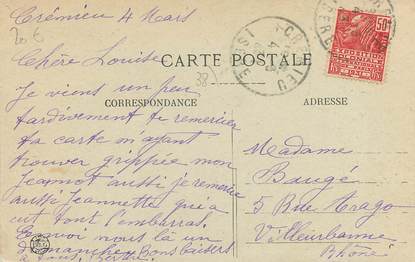 Crémieu 4 Mars
20 €
Chère Louise
CARTE POSTALE
38
CREMIEU
ISERE
50c
EXPOSITION
COLONIALE
INTERNATIONALE
PARIS 1931
Je viens un peu
CORRESPONDANCE
ADRESSE
tardivement te remercier
ta carte m'ayant
trouver grippée mon
Jeannot aussi je remercie
aussi Jeannette qui a
eut tout l'embarras.
Envoi nous là un
dimanche Bons baisers
à vous
Madame
Baugé
5 Rue Arago
Villeurbanne
Rhône